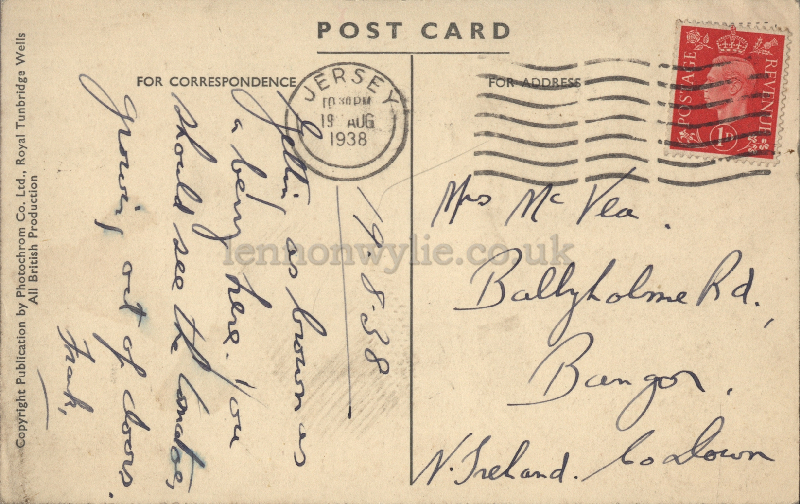 POST CARD
FOR CORRESPONDENCE
FOR ADDRESS
Copyright Publication by Photochrom Co. Ltd., Royal Tunbridge Wells
All British Production
JERSEY
10 30 PM
19 AUG
1938
POSTAGE
REVENUE
1D
19.8.38
Getting as brown as
a berry here. You
should see the tomatoes
growing out of doors.
Frank.
Mrs McVea.
Ballyholme Rd.,
Bangor,
N. Ireland. Co Down
lennonwylie.co.uk